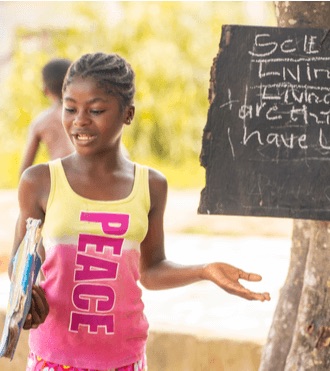 PEACE
SCIE
Livin
Livin
are th
have L